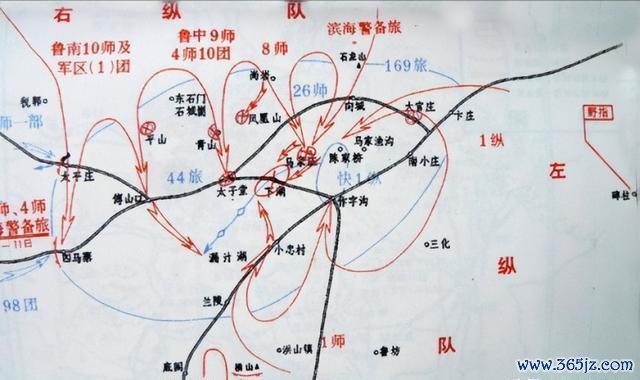 右 纵 队
鲁南10师及
军区(1)团
鲁中9师
4师10团
8师
滨海警备旅
石龙山
169旅
尚岩
26师
向城
大官庄
卞庄
东石门
石城崮
凤凰山
平山
青山
马家庄
马家渔沟
陈家桥
南小庄
1纵
野指
师一部
太子庄
傅山口
44旅
太子堂
下湖
快1纵
作字沟
左
纵
队
碑柱
师、4师
海警备旅
一11日
四马寨
漏汁湖
小忠村
三化
98团
兰陵
1师
洪山镇
鲁坊
底阁
横山
www.365jz.com